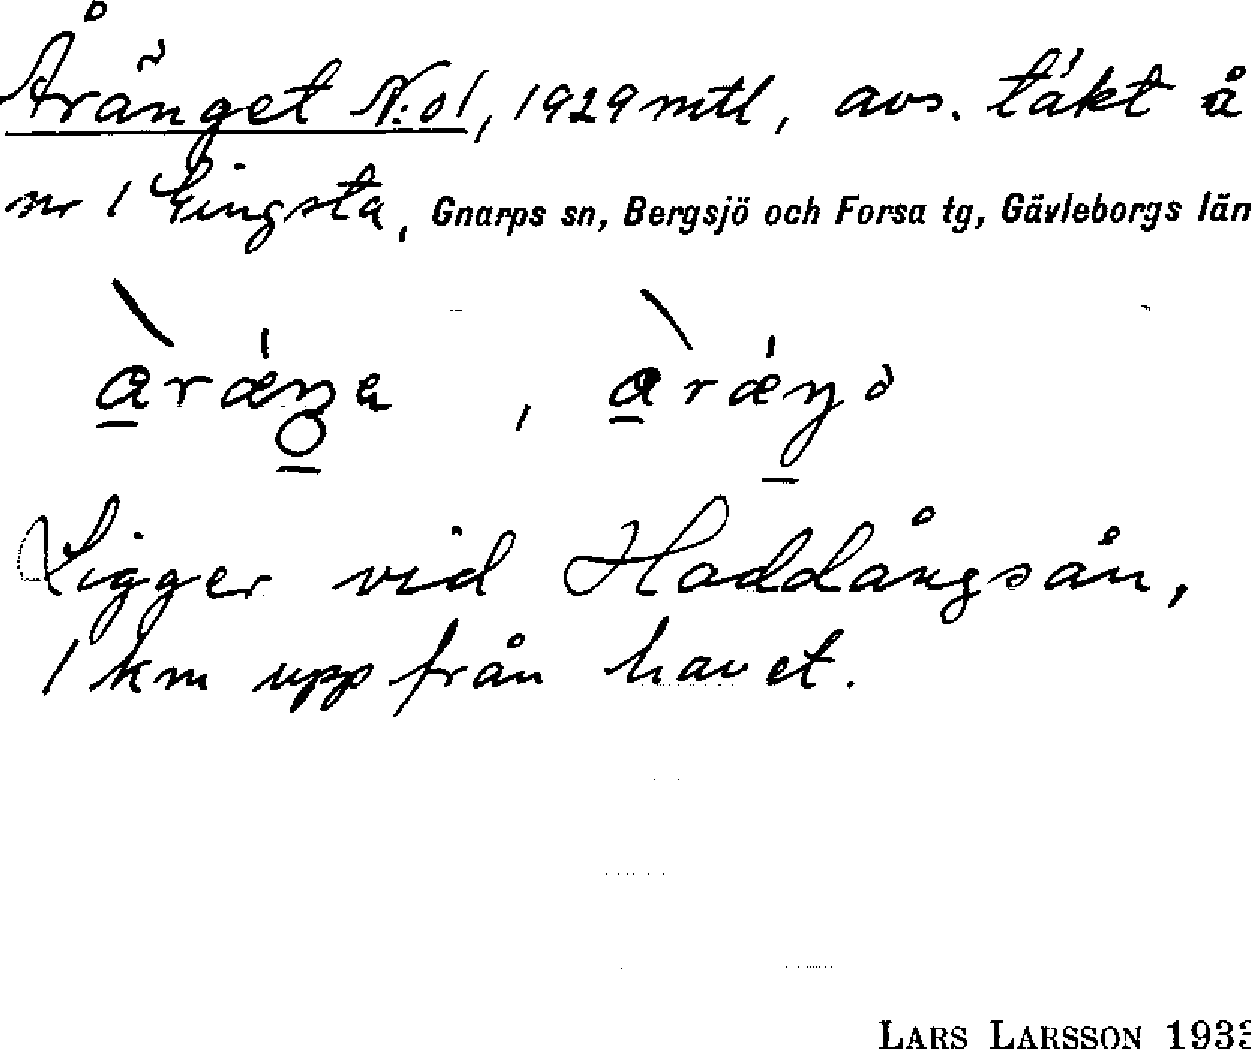 Åränget N:o 1, 1929 mtl, avs. täkt å
nr 1 Gingsta, Gnarps sn, Bergsjö och Forsa tg, Gävleborgs län
Ligger vid Haddångsån,
1 km upp från havet.
LARS LARSSON 1933